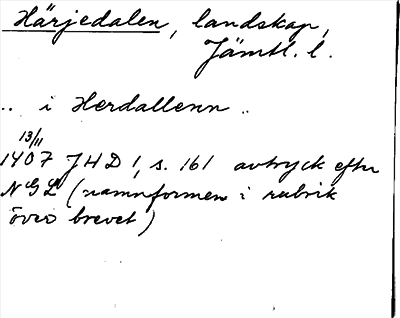 Härjedalen, landskap,
Jämtl. l.
.. i Herdallenn ..
13/11
1407 JHD 1, s. 161 avtryck efter
NGL (namnformen i rubrik
över brevet)